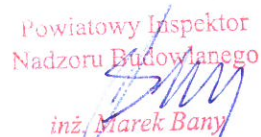 Powiatowy Inspektor
Nadzoru Budowlanego
inż. Marek Bany